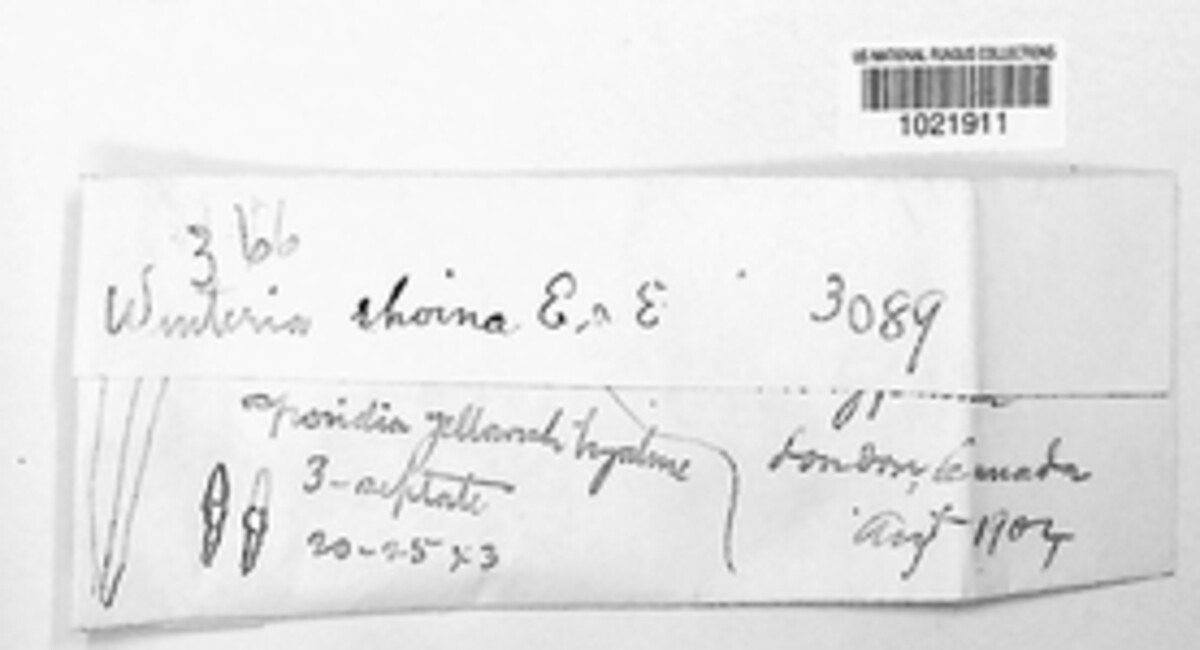 US NATIONAL FUNGUS COLLECTIONS
1021911
366
Winteria rhoina E. & E.
3089
sporidia yellowish hyaline
3-septate
20-25 x 3
London, Canada
Aug 1904